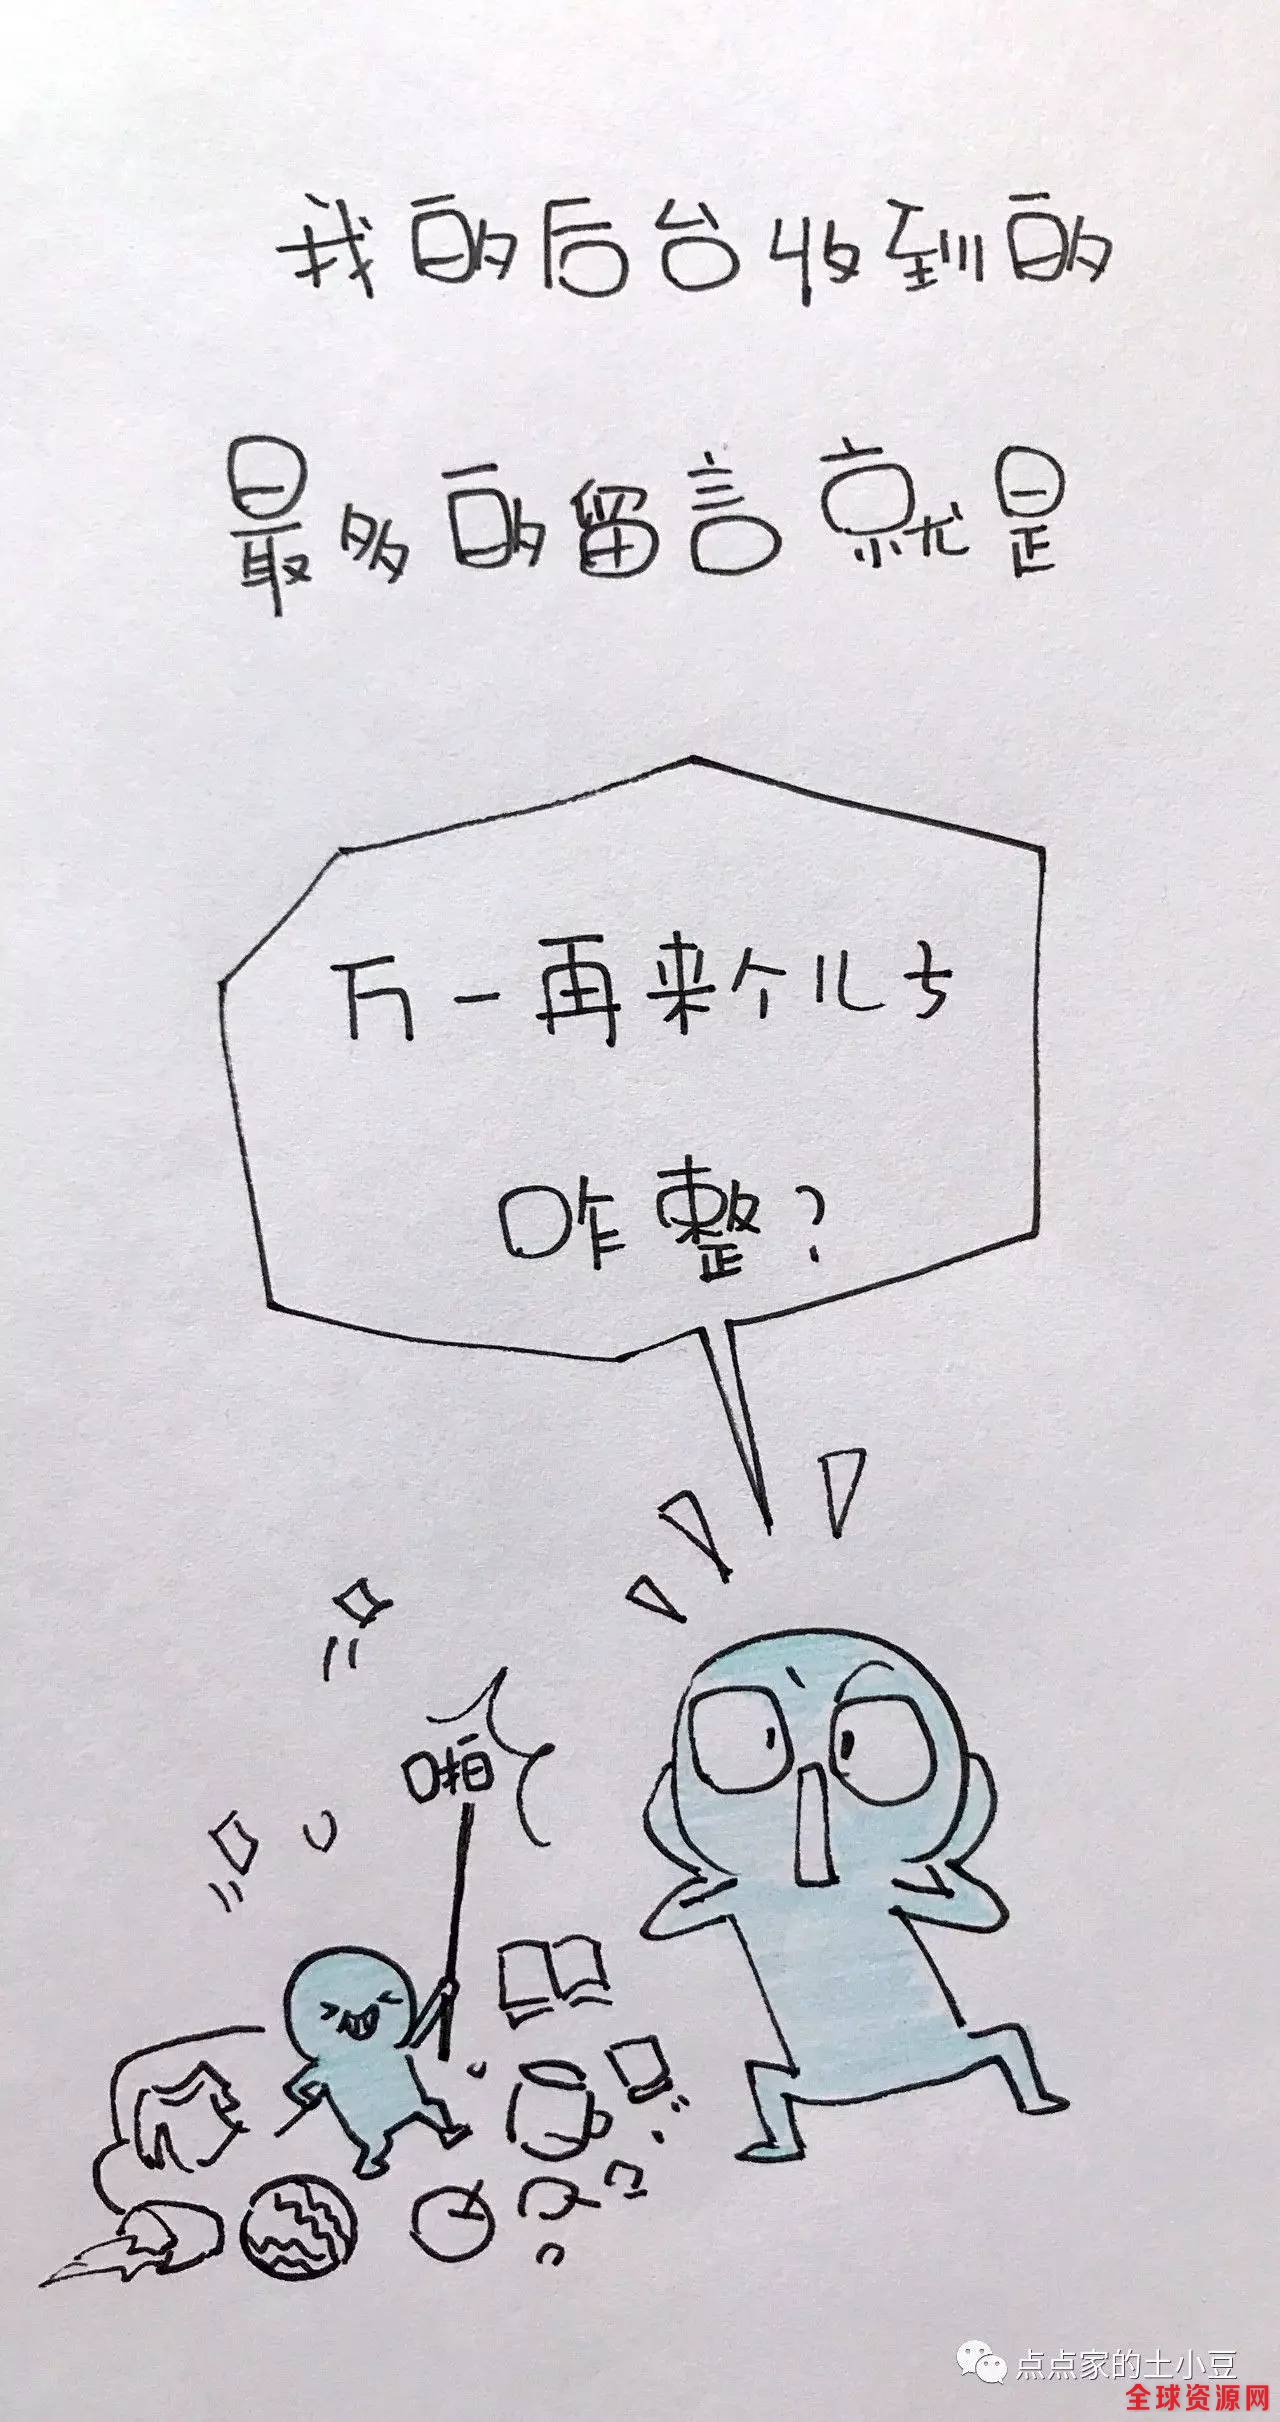 我的后台收到的
最多的留言就是
万一再来个儿子
咋整？
啪
点点家的土小豆
全球资源网